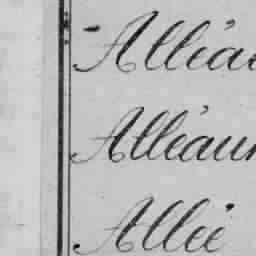 Alléau
Alléaum
Allée